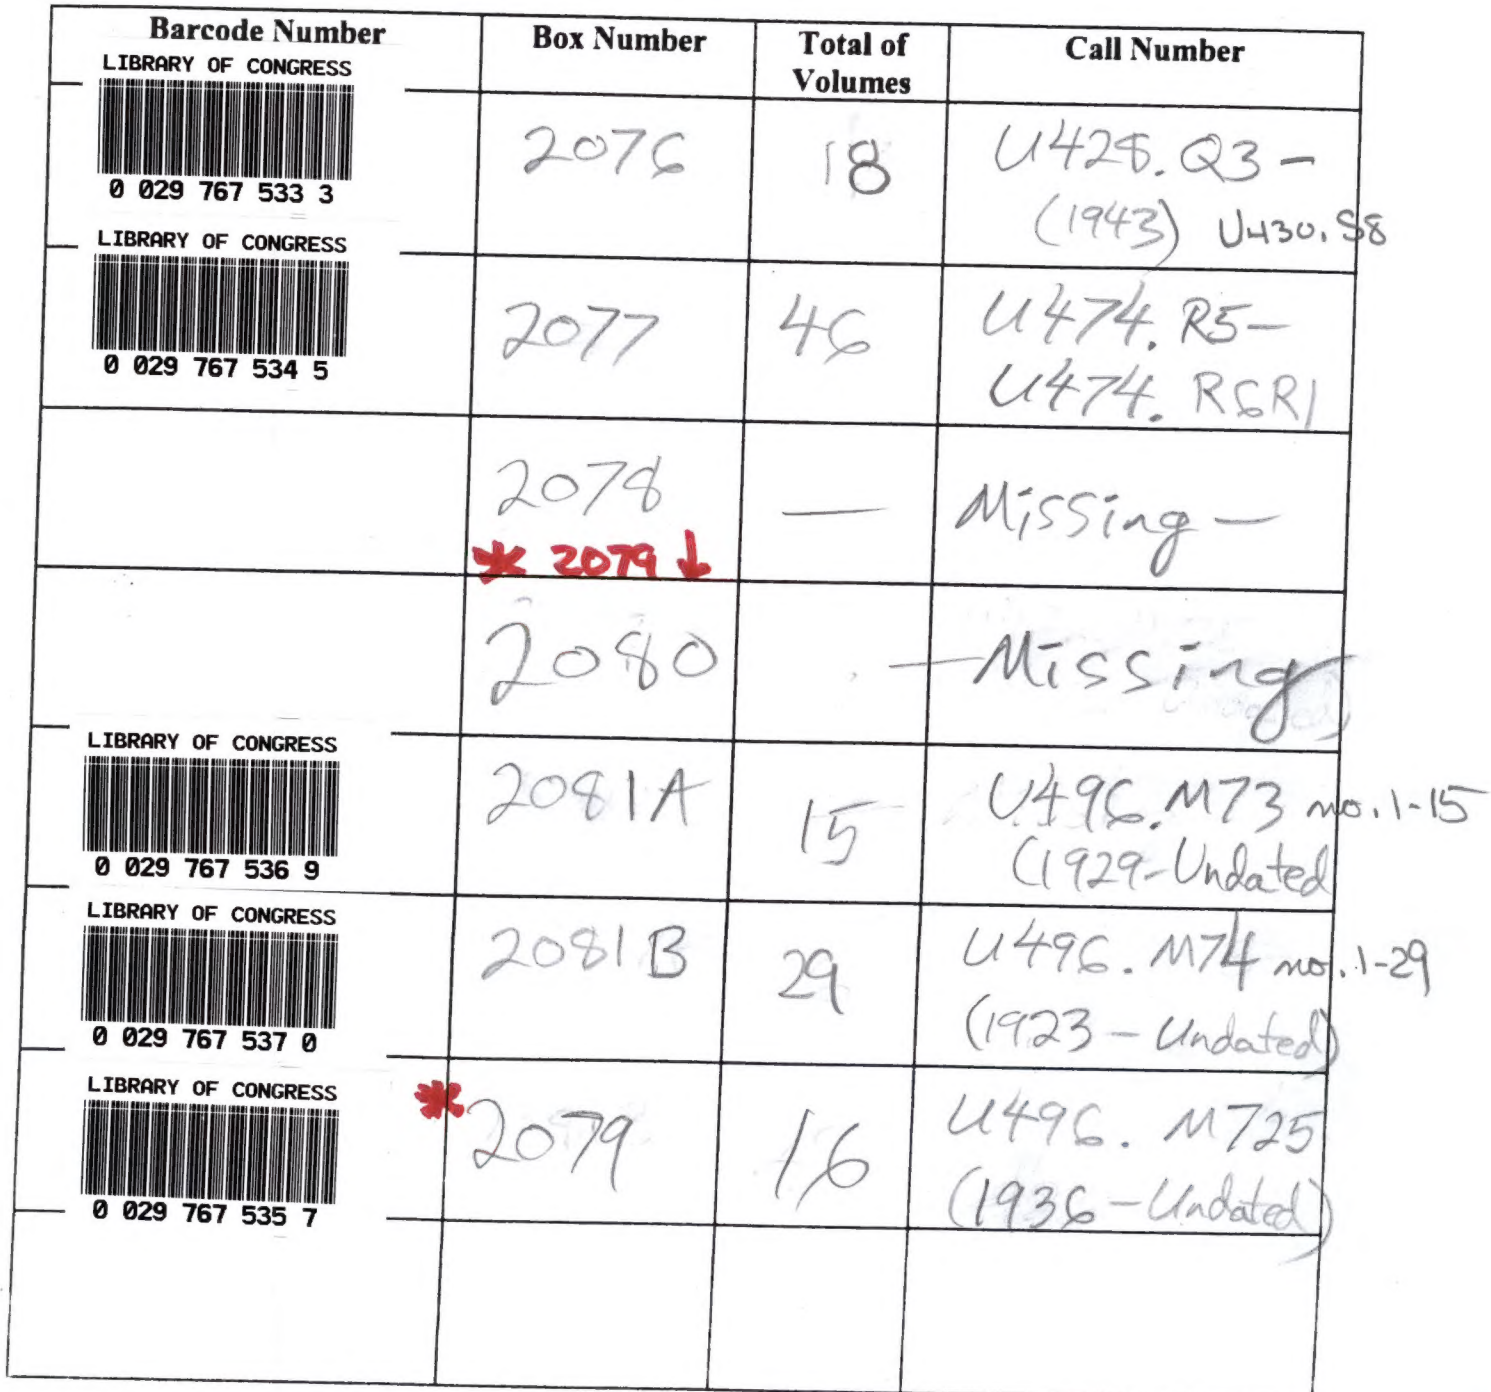 Barcode Number Box Number Total of Volumes Call Number
LIBRARY OF CONGRESS
0 029 767 533 3
2076 18 U428.Q3-
(1943) U430.S8
LIBRARY OF CONGRESS
0 029 767 534 5
2077 46 U474.R5-
U474.R6R1
2078 — Missing -
* 2079 ↓
2080 - Missing
LIBRARY OF CONGRESS
0 029 767 536 9
2081A 15 U496.M73 no.1-15
(1929-Undated
LIBRARY OF CONGRESS
0 029 767 537 0
2081B 29 U496.M74 no.1-29
(1923-Undated)
LIBRARY OF CONGRESS
0 029 767 535 7
* 2079 16 U496.M725
(1936-Undated)